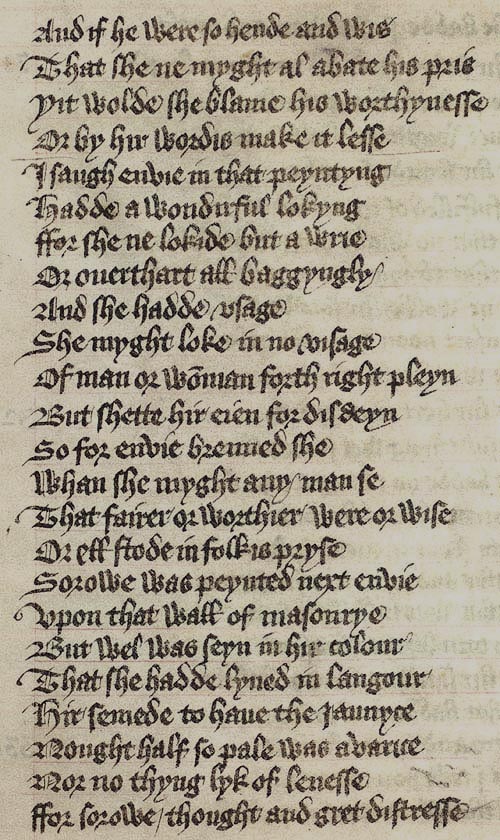 And if he were so hende and wis
That she ne myght al abate his pris
Yit wolde she blame his worthynesse
Or by hir wordis make it lesse
I saugh envie in that peyntyng
Hadde a wondirful lokyng
ffor she ne lokide but a wrie
Or ouerthart all baggyngly
And she hadde vsage
She myght loke in no visage
Of man or wōman forth right pleyn
But shette hir eien for disdeyn
So for envie brenned she
Whan she myght any man se
That fairer or worthier were or wise
Or ell stode in folkis pryse
Sorowe was peynted next envie
Vpon that wall of masonrye
But wel was seyn in hir colour
That she hadde lyued in langour
Hir semede to haue the Iaunyce
Nought half so pale was avarice
Nor no thyng lyk of lenesse
ffor sorowe / thought and gret distresse